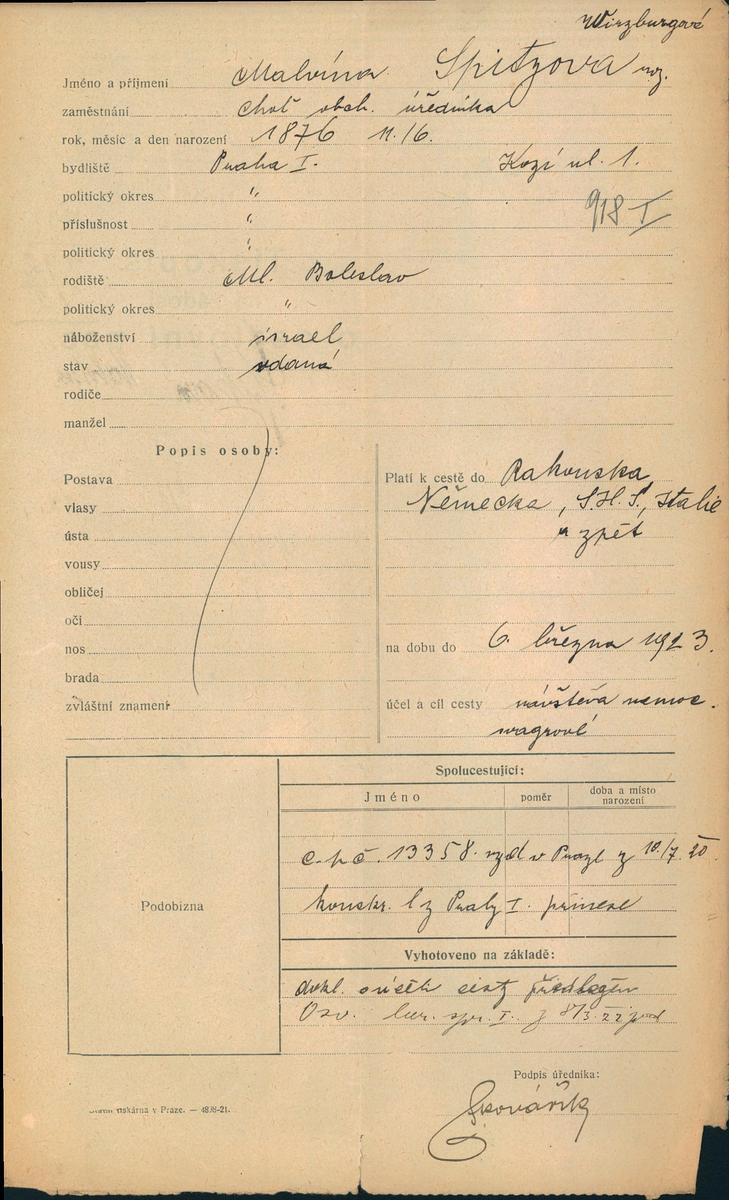 Wirzburgové
Jméno a příjmení Malvína Spitzova roz.
zaměstnání choť obch. úředníka
rok, měsíc a den narození 1876 11./6.
bydliště Praha I. Kozí ul. 1.
politický okres "
918 I
příslušnost "
politický okres "
rodiště Ml. Boleslav
politický okres "
náboženství israel
stav vdaná
rodiče
manžel
Popis osoby:
Postava
vlasy
ústa
vousy
obličej
oči
nos
brada
zvláštní znamení
Platí k cestě do Rakouska
Německa, S.H.S., Italie
a zpět
na dobu do 6. března 1923.
účel a cíl cesty návštěva nemoc.
Spolucestující:
Jméno poměr doba a místo narození
c. p. č. 13358. vyd v Praze z 10/7. 20
konskr. l z Prahy I. přinese
Podobizna
Vyhotoveno na základě:
dokl. o účelu cesty předložen
Osv. ber. spr. I. z 8/3. 22
Podpis úředníka:
tiskárna v Praze. — 4838-21.